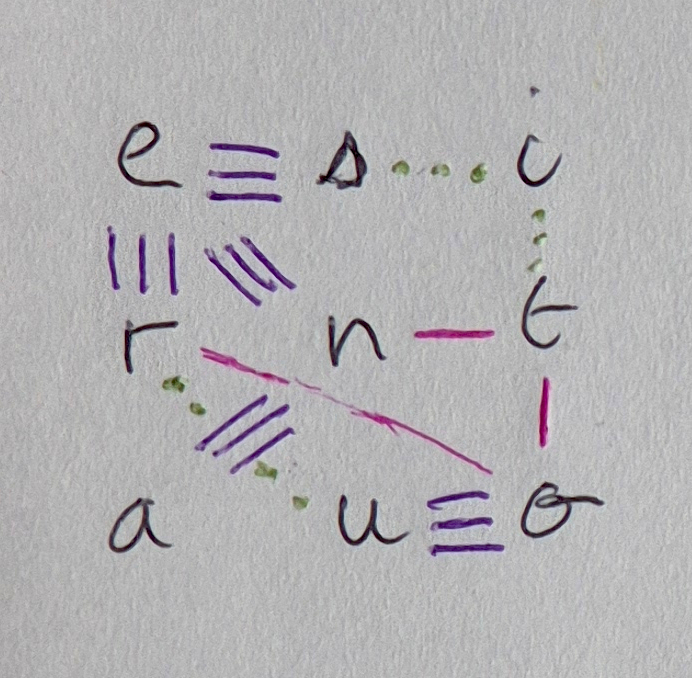 e s i
r n t
a u o